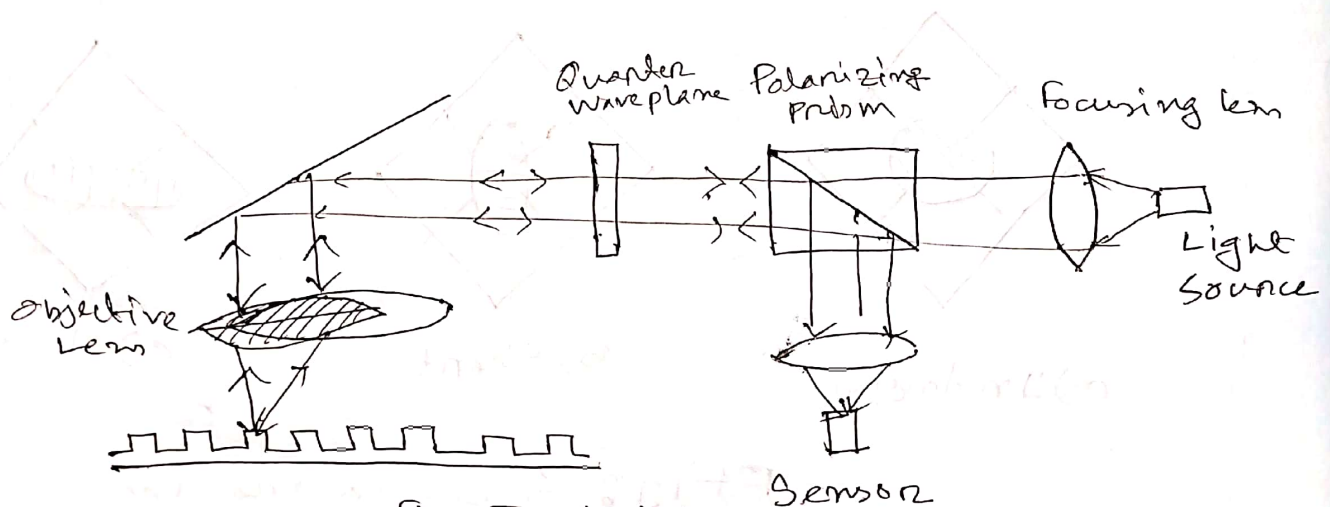 Quarter
waveplane
Polarizing
prism
Focusing lens
Light
Source
Objective
Lens
Sensor